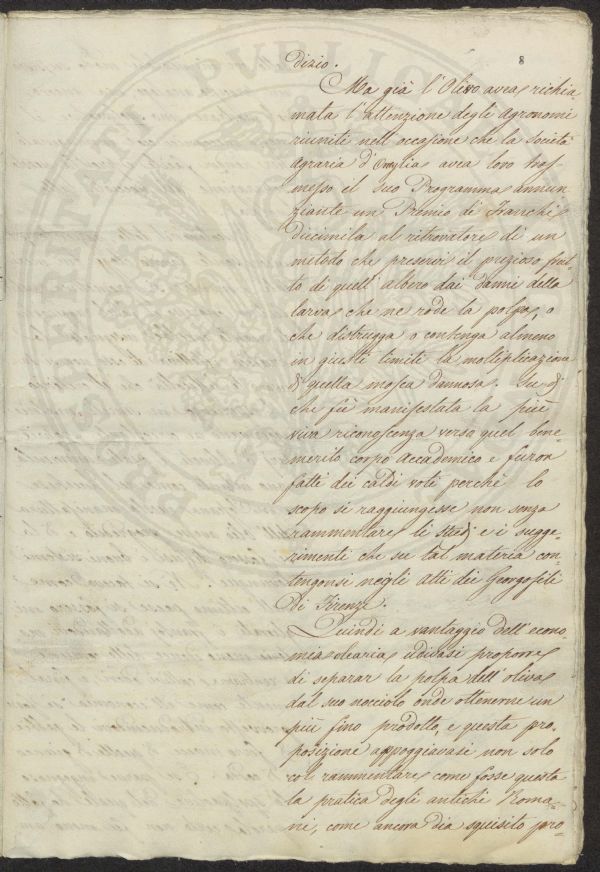 8
dizio.
Ma già l'Olivo avea richia-
mata l'attenzione degli Agronomi
riuniti nell'occasione che la società
agraria d'Oneglia avea loro tras-
messo il suo Programma annun
ziante un Premio di Franchi
diecimila al ritrovatore di un
metodo che preservi il prezioso frut-
to di quell'albero dai danni della
larva che ne rode la polpa, o
che distrugga o contenga almeno
in giusti limiti la moltiplicazione
di quella mosca dannosa. Su di
che fù manifestata la più
viva riconoscenza verso quel bene-
merito corpo accademico e furon
fatti dei caldi voti perchè lo
scopo si raggiungesse non senza
rammentare li studj e i sugge-
rimenti che su tal materia con-
tengonsi negli atti dei Georgofili
di Firenze.
Quindi a vantaggio dell'econo-
mia olearia udivasi proporre
di separar la polpa dell'oliva
dal suo nocciolo onde ottenerne un
più fino prodotto, e questa pro-
posizione appoggiavasi non solo
col rammentare come fosse questa
la pratica degli antichi Roma-
ni, come ancora dia squisito pro-
PROSPERITATI PVBLICAE